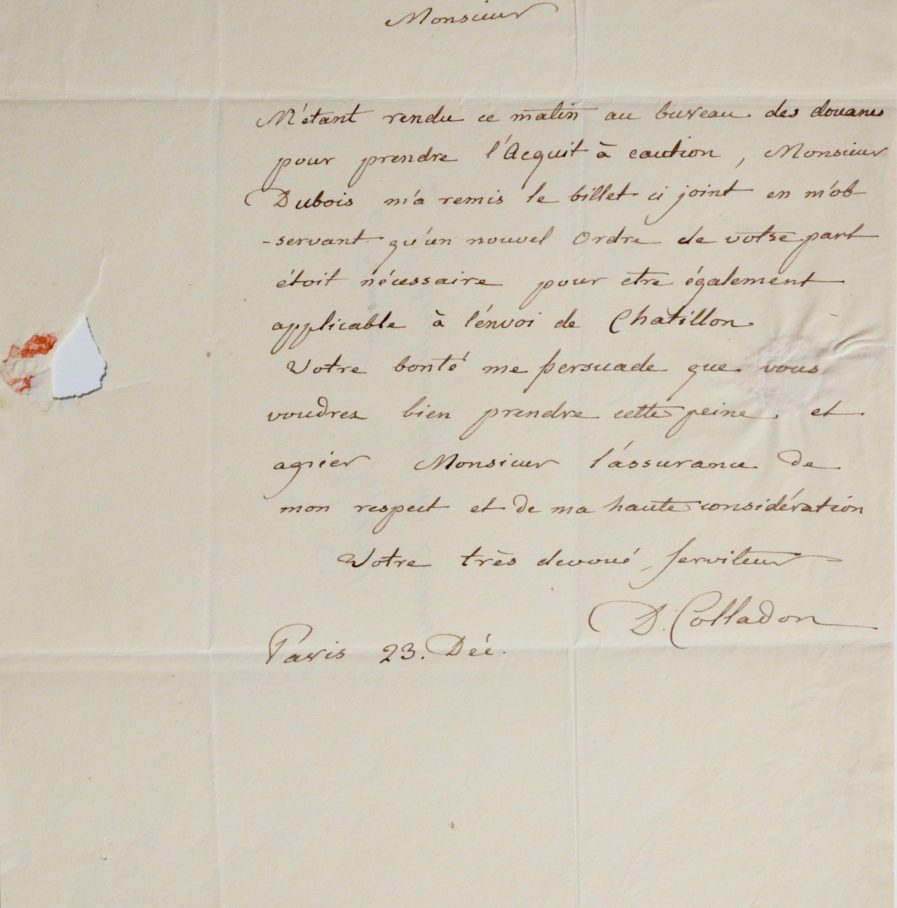 Monsieur
M'étant rendu ce matin au bureau des douanes
pour prendre l'Acquit à caution, Monsieur
Dubois m'a remis le billet ci joint en m'ob
-servant qu'un nouvel Ordre de votre part
étoit nécessaire pour etre également
applicable à l'énvoi de Chatillon.
Votre bonté me persuade que vous
voudrez bien prendre cette peine. et
agréer Monsieur l'assurance de
mon respect et de ma haute considération
Votre très devoué serviteur
D. Colladon
Paris 23. Déc.